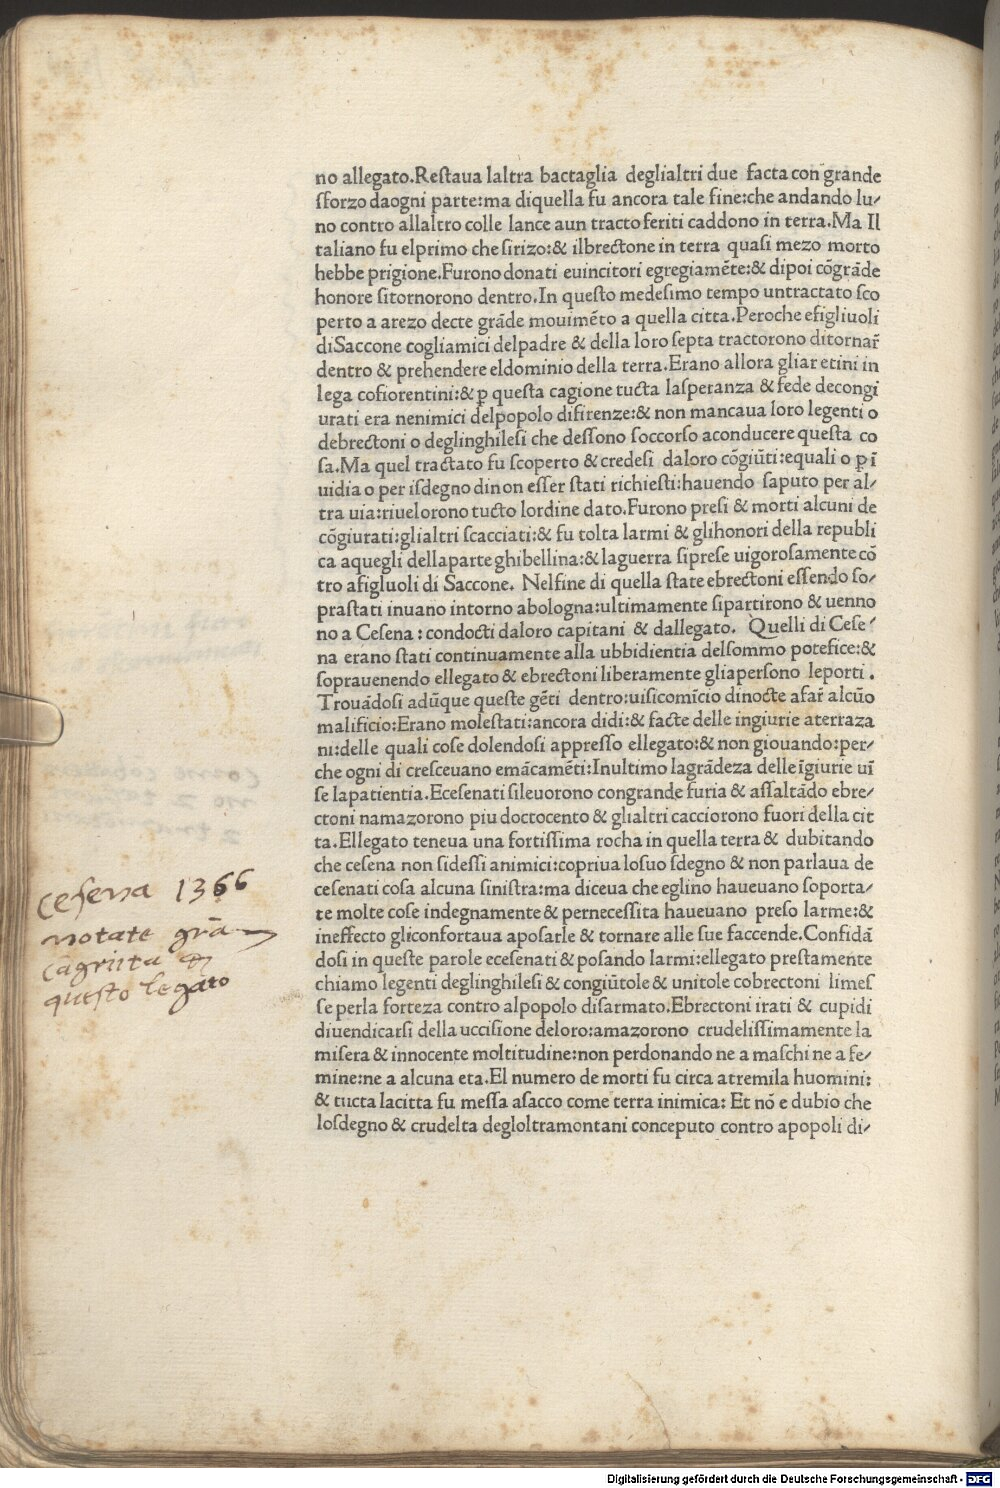 no allegato.Restaua laltra bactaglia deglialtri due facta con grande
sforzo daogni parte:ma diquella fu ancora tale fine:che andando lu-
no contro allaltro colle lance aun tracto feriti caddono in terra.Ma Il
taliano fu elprimo che sirizo:& ilbrectone in terra quasi mezo morto
hebbe prigione.Furono donati euincitori egregiamẽte:& dipoi cõgrãde
honore sitornorono dentro.In questo medesimo tempo untractato sco
perto a arezo decte grãde mouimẽto a quella citta.Peroche efigliuoli
diSaccone cogliamici delpadre & della loro septa tractorono ditornar̃
dentro & prehendere eldominio della terra.Erano allora gliaretini in
lega cofiorentini:& ꝑ questa cagione tucta lasperanza & fede decongi
urati era nenimici delpopolo difirenze:& non mancaua loro legenti o
debrectoni o deglinghilesi che dessono soccorso aconducere questa co
sa.Ma quel tractato fu scoperto & credesi daloro cõgiũti:equali o ꝑ ĩ
uidia o per isdegno dinon esser stati richiesti:hauendo saputo per al-
tra uia:riuelorono tucto lordine dato.Furono presi & morti alcuni de
cõgiurati:glialtri scacciati:& fu tolta larmi & glihonori della republi
ca aquegli dellaparte ghibellina:& laguerra siprese uigorosamente cõ
tro afigluoli di Saccone. Nelfine di quella state ebrectoni essendo so-
prastati inuano intorno abologna:ultimamente sipartirono & uenno
no a Cesena : condocti daloro capitani & dallegato. Quelli di Cese-
na erano stati continuamente alla ubbidientia delsommo potefice:&
soprauenendo ellegato & ebrectoni liberamente gliapersono leporti .
Trouãdosi adũque queste gẽti dentro:uisicomĩcio dinocte afar̃ alcũo
malificio:Erano molestati:ancora didi:& facte delle ingiurie aterraza
ni:delle quali cose dolendosi appresso ellegato:& non giouando:per-
che ogni di cresceuano emãcamẽti:Inultimo lagrãdeza delle ĩgiurie uĩ
se lapatientia.Ecesenati sileuorono congrande furia & assaltãdo ebre-
ctoni namazorono piu doctocento & glialtri cacciorono fuori della cit
ta.Ellegato teneua una fortissima rocha in quella terra & dubitando
che cesena non sidessi animici:copriua losuo sdegno & non parlaua de
cesenati cosa alcuna sinistra:ma diceua che eglino haueuano soporta-
te molte cose indegnamente & pernecessita haueuano preso larme:&
ineffecto gliconfortaua aposarle & tornare alle sue faccende.Confidã
dosi in queste parole ecesenati & posando larmi:ellegato prestamente
chiamo legenti deglinghilesi & congiũtole & unitole cobrectoni limes
se perla forteza contro alpopolo disarmato.Ebrectoni irati & cupidi
diuendicarsi della uccisione deloro:amazorono crudelissimamente la
misera & innocente moltitudine:non perdonando ne a maschi ne a fe-
mine:ne a alcuna eta.El numero de morti fu circa atremila huomini:
& tucta lacitta fu messa asacco come terra inimica: Et nõ e dubio che
losdegno & crudelta degloltramontani conceputo contro apopoli di-
cesena 1366
notate grã
questo legato
Digitalisierung gefördert durch die Deutsche Forschungsgemeinschaft - DFG